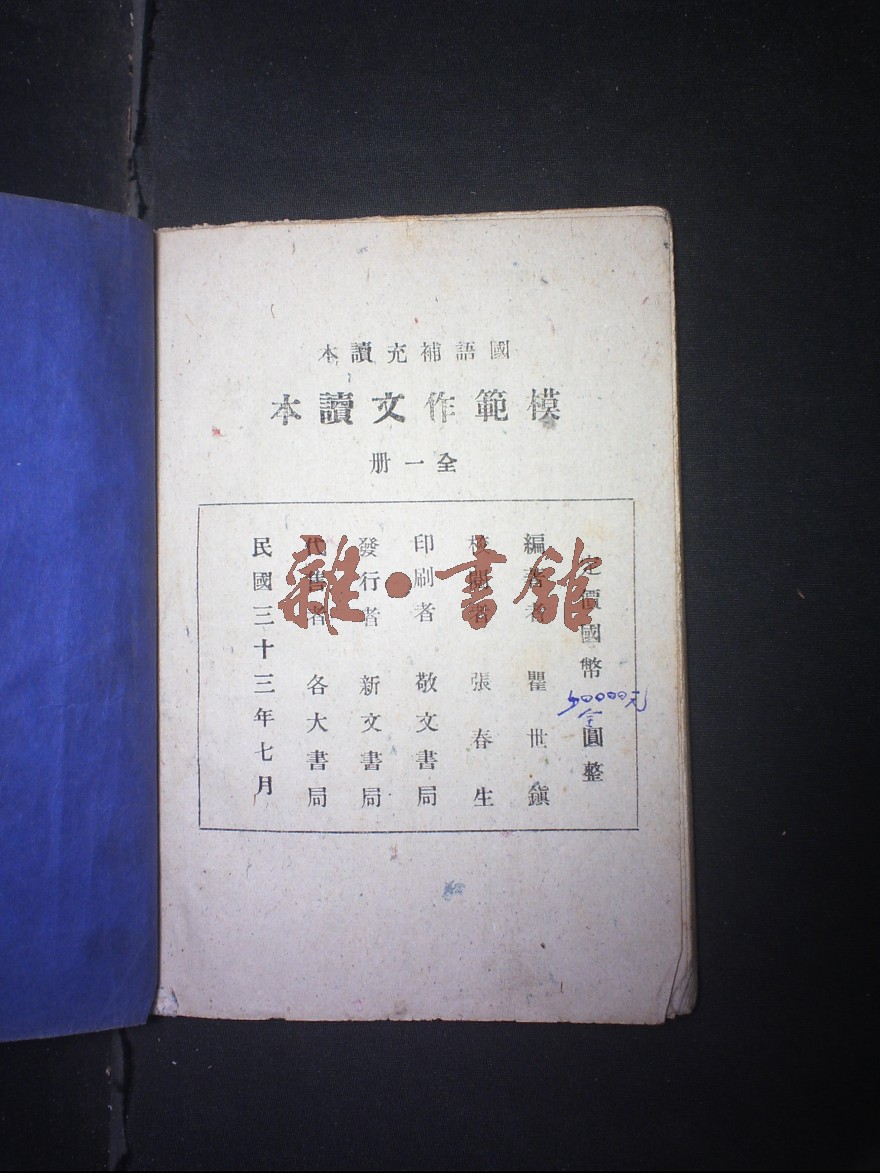 國語補充讀本
模範作文讀本
全一册
定價國幣 圓整
50000元
全
編著者 瞿世鎮
校閱者 張春生
印刷者 敬文書局
發行者 新文書局
代售者 各大書局
民國三十三年七月
雜·書館